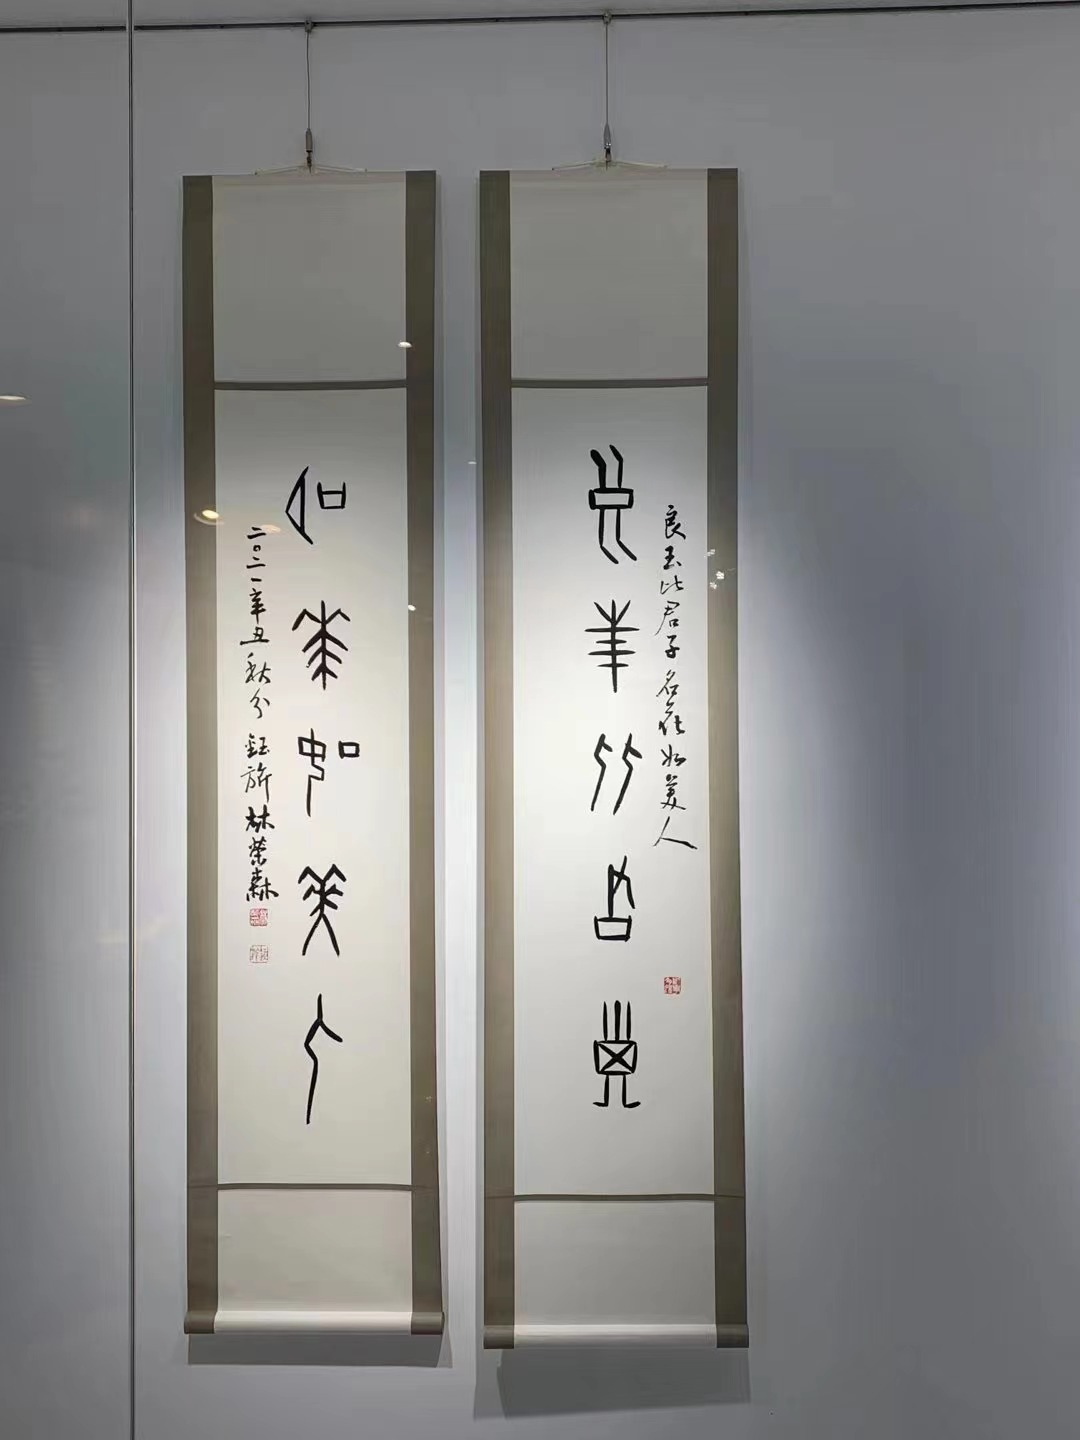 良玉比君子名花如美人
良玉比君子
名花如美人
二〇二一辛丑秋分鈺林榮森